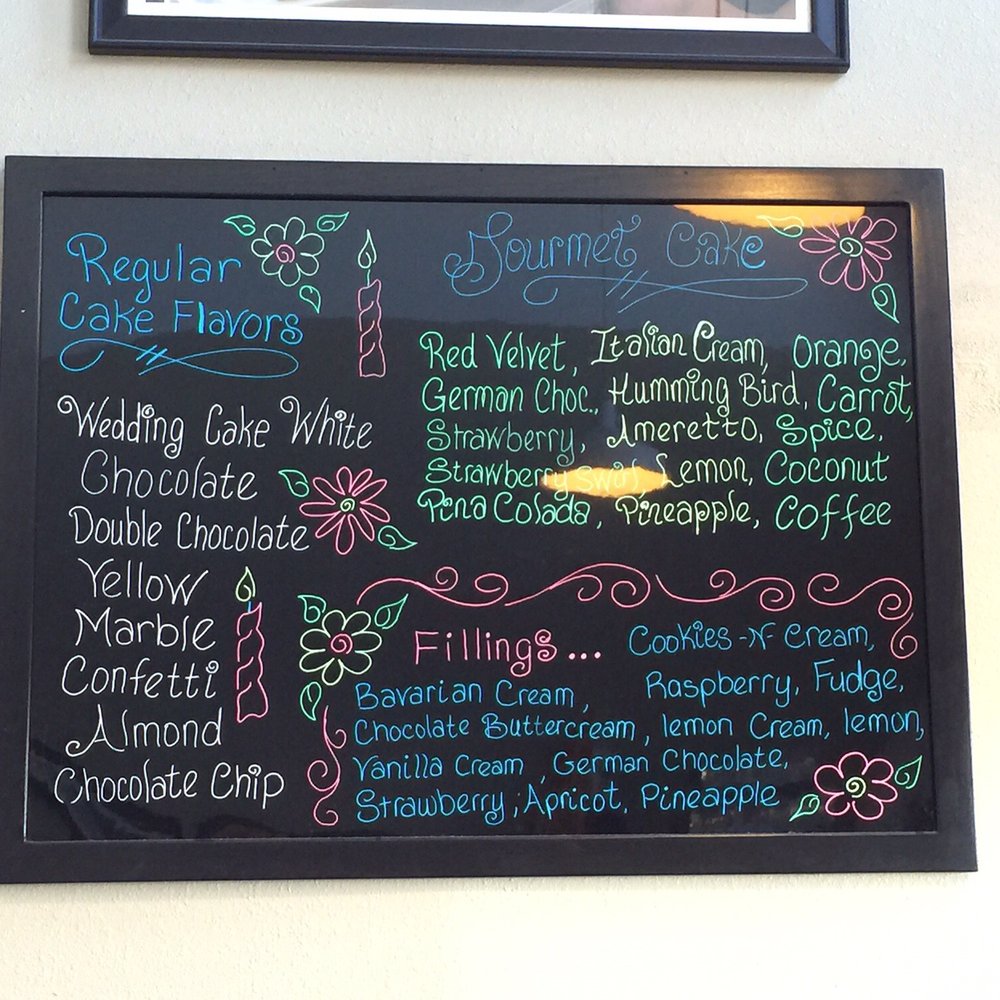 Regular
Cake Flavors
Wedding Cake White
Chocolate
Double Chocolate
Yellow
Marble
Confetti
Almond
Chocolate Chip
Gourmet Cake
Red Velvet, Italian Cream, Orange,
German Choc., Humming Bird, Carrot,
Strawberry, Ameretto, Spice,
Strawberry Lemon, Coconut
Pina Colada, Pineapple, Coffee
Fillings... Cookies-N-Cream,
Bavarian Cream, Raspberry, Fudge,
Chocolate Buttercream, lemon Cream, lemon,
Vanilla Cream, German Chocolate,
Strawberry, Apricot, Pineapple